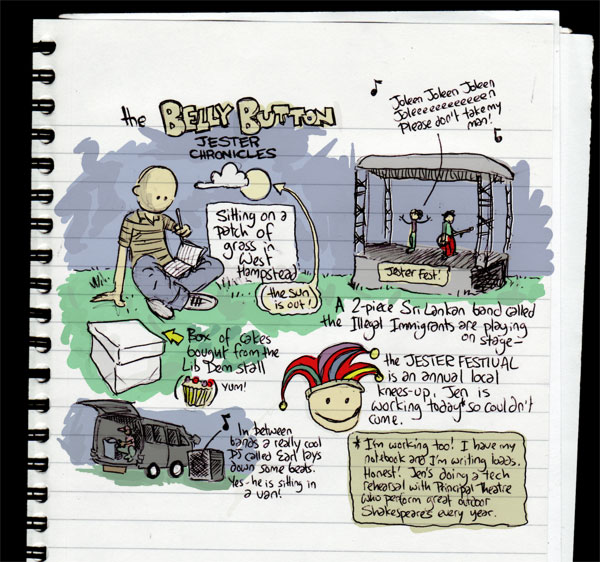 the BELLY BUTTON
JESTER
CHRONICLES
Joleen Joleen Joleen
Joleeeeeeeeeeeen
Please don't take my
man!
Sitting on a
patch of
grass in
West
Hampstead
the sun
is out!
Jester Fest!
A 2-piece Sri Lankan band called
the Illegal Immigrants are playing
on stage-
Box of cakes
bought from the
Lib Dem stall
yum!
the JESTER FESTIVAL
is an annual local
knees-up. Jen is
working today* so couldn't
come.
In between
bands a really cool
DJ called Earl lays
down some beats.
Yes - he is sitting in
a van!
* I'm working too! I have my
notebook and I'm writing loads.
Honest! Jen's doing a tech
rehearsal with Principal Theatre
who perform great outdoor
Shakespeares every year.